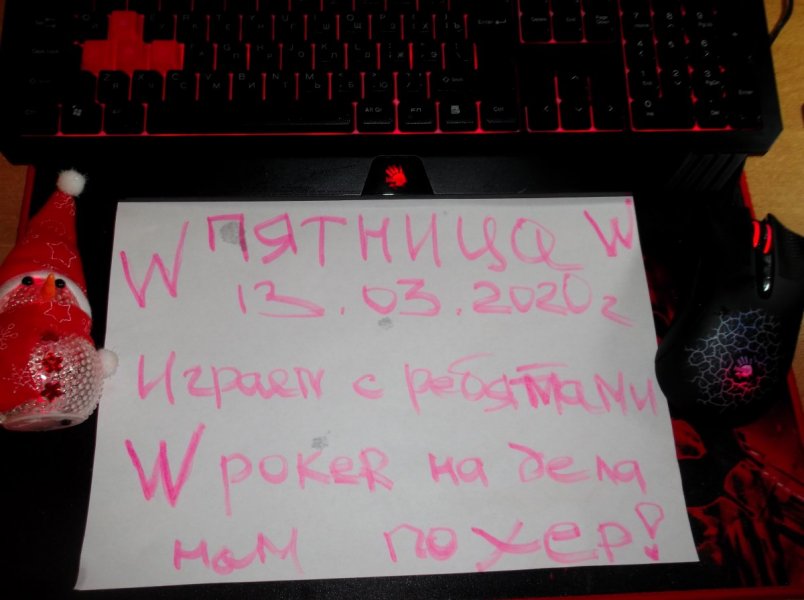 W ПЯТНИЦА W
13.03.2020г
Играем с ребятами
W рокеR на дела
нам похер!